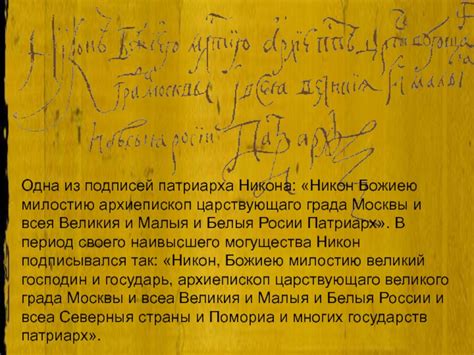 Никонъ Божиею
Одна из подписей патриарха Никона: «Никон Божиею
милостию архиепископ царствующаго града Москвы и
всея Великия и Малыя и Белыя Росии Патриарх». В
период своего наивысшего могущества Никон
подписывался так: «Никон, Божиею милостию великий
господин и государь, архиепископ царствующаго великого
града Москвы и всеа Великия и Малыя и Белыя России и
всеа Северныя страны и Помориа и многих государств
патриарх».